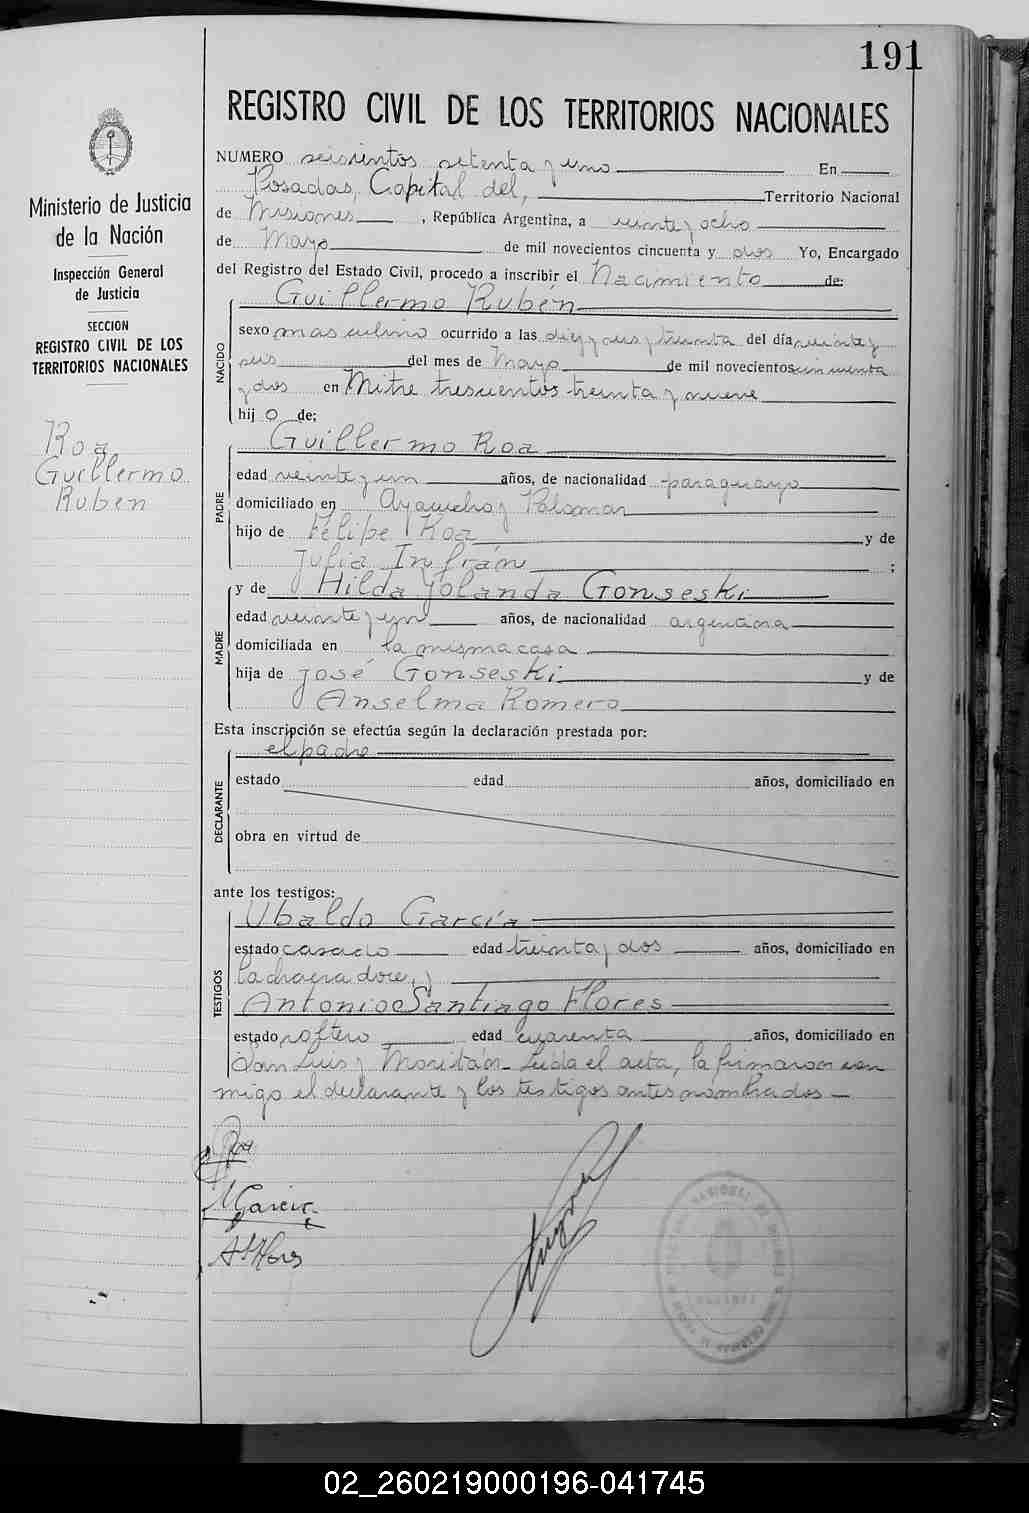 191
REGISTRO CIVIL DE LOS TERRITORIOS NACIONALES
Ministerio de Justicia
de la Nación
Inspección General
de Justicia
SECCION
REGISTRO CIVIL DE LOS
TERRITORIOS NACIONALES
Roa
Guillermo
Rubén
NUMERO seiscientos setenta y uno En
Posadas, Capital del, Territorio Nacional
de Misiones, República Argentina, a veinte y ocho
de Mayo de mil novecientos cincuenta y dos Yo, Encargado
del Registro del Estado Civil, procedo a inscribir el Nacimiento de:
NACIDO
Guillermo Rubén
sexo masculino ocurrido a las diez y seis y treinta del día veinte y
seis del mes de Mayo de mil novecientos cincuenta
y dos en Mitre trescientos treinta y nueve
hij o de;
PADRE
Guillermo Roa
edad veinte y un años, de nacionalidad paraguayo
domiciliado en Ayacucho y Palomar
hijo de Felipe Roa y de
Julia Infrán ;
MADRE
y de Hilda Yolanda Gonseski
edad veinte y un años, de nacionalidad argentina
domiciliada en la misma casa
hija de José Gonseski y de
Anselma Romero
Esta inscripción se efectúa según la declaración prestada por:
DECLARANTE
el padre
estado edad años, domiciliado en
obra en virtud de
ante los testigos:
TESTIGOS
Ubaldo García
estado casado edad treinta y dos años, domiciliado en
la chacra doce, y
Antonio Santiago Flores
estado soltero edad cuarenta años, domiciliado en
San Luis y Moritán. Leída el acta, la firmaron con
migo el declarante y los testigos antes nombrados
Roa
García
Flores
02_260219000196-041745